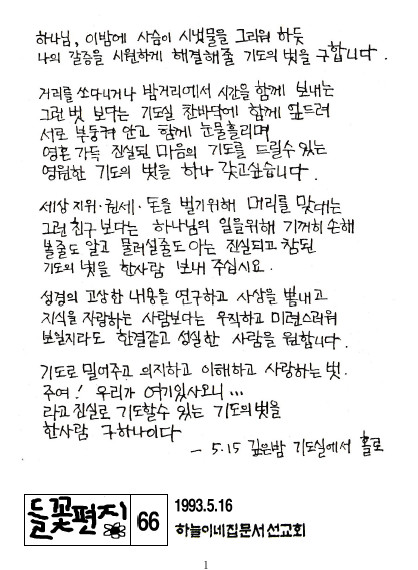 하나님, 이밤에 사슴이 시냇물을 그리워 하듯
나의 갈증을 시원하게 해결해줄 기도의 벗을 구합니다.
거리를 쏘다니거나 밤거리에서 시간을 함께 보내는
그런 벗 보다는 기도실 찬바닥에 함께 엎드려
서로 부둥켜 안고 함께 눈물흘리며
영혼 가득 진실된 마음의 기도를 드릴수 있는
영원한 기도의 벗을 하나 갖고싶습니다.
세상 지위·권세·돈을 벌기위해 머리를 맞대는
그런 친구 보다는 하나님의 일을위해 기꺼히 손해
볼줄도 알고 물러설줄도 아는 진실되고 참된
기도의 벗을 한사람 보내 주십시요.
성경의 고상한 내용을 연구하고 사상을 뽐내고
지식을 자랑하는 사람보다는 우직하고 미련스러워
보일지라도 한결같고 성실한 사람을 원합니다.
기도로 밀어주고 의지하고 이해하고 사랑하는 벗.
주여! 우리가 여기있사오니...
라고 진실로 기도할수 있는 기도의 벗을
한사람 구하나이다
- 5.15 깊은밤 기도실에서 홀로
들꽃편지 66
1993.5.16
하늘이네집문서선교회
1